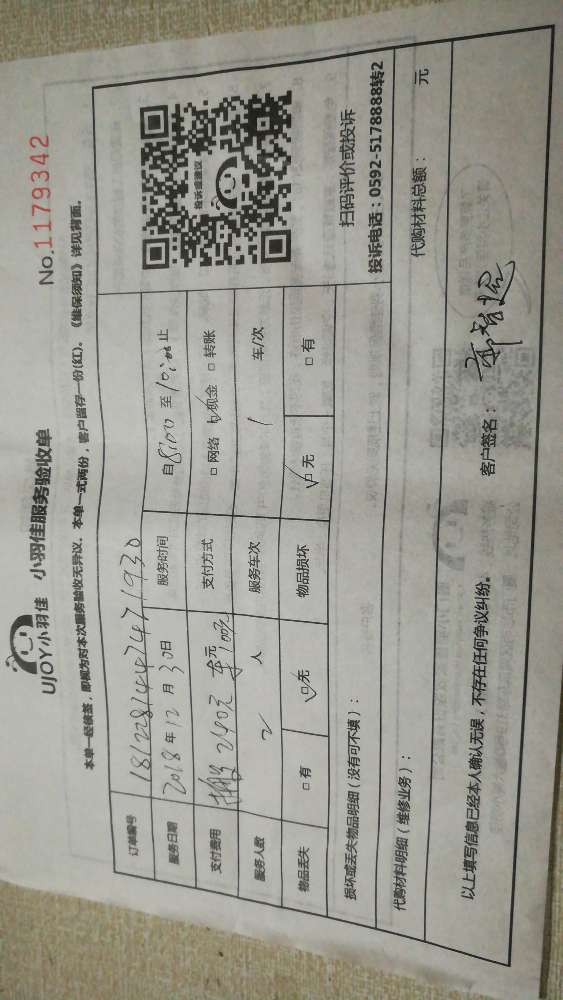 UJOY小羽佳 小羽佳服务验收单
No.1179342
本单一经续签,即视为对本次服务验收无异议,本单一式两份,客户留存一份(红)。《维保须知》详见背面。
订单编号 181228144747471930
服务日期 2018年12月30日 服务时间 自8:00至10:00止
支付费用 240元 车100元 支付方式 □网络 ☑现金 □转账
服务人数 2人 服务车次 1 车/次
物品丢失 □有 ☑无 物品损坏 ☑无 □有
投诉或建议
扫码评价或投诉
投诉电话:0592-5178888转2
损坏或丢失物品明细(没有可不填):
代购材料明细(维修业务): 代购材料总额: 元
以上填写信息已经本人确认无误,不存在任何争议纠纷。 客户签名: